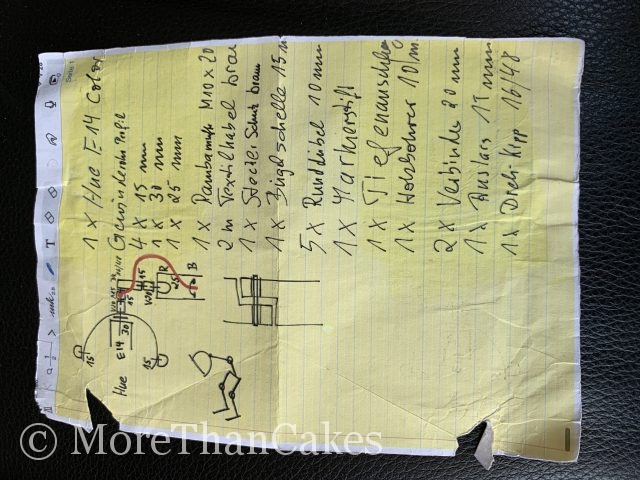 1 x Hue E14 Color
4 x 15 mm
1 x 30 mm
1 x 25 mm
1 x Rampamuffe M10 x 20
2 m Textilkabel brau
1 x Stecker Schuko braun
1 x Bügelschelle 15 m
5 x Runddübel 10 mm
1 x Markierstift
1 x Tiefenanschlag
1 x Holzbohrer 10 m
2 x Verbinder 20 mm
1 x Auslass 15 mm
1 x Dreh. Kipp 16/48
15
Hue E14 30
15
15
15
R
25
B
© MoreThanCakes